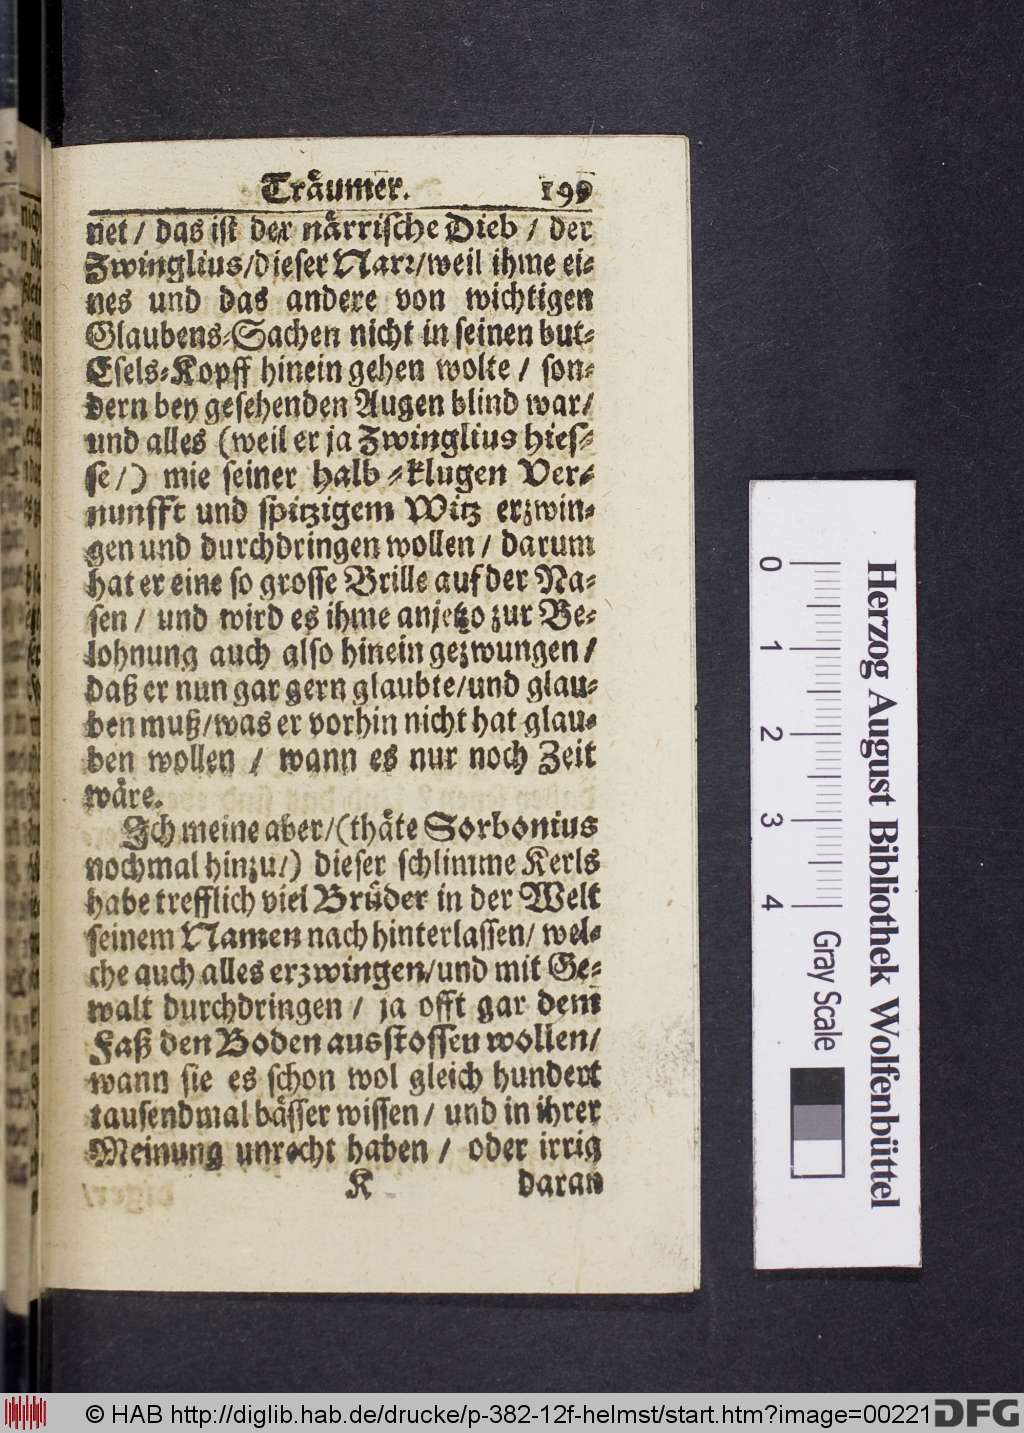 Träumer. 199
net / das ist der närrische Dieb / der
Zwinglius/dieser Narr/weil ihme ei-
nes und das andere von wichtigen
Glaubens-Sachen nicht in seinen but-
Esels-Kopff hinein gehen wolte / son-
dern bey gesehenden Augen blind war/
und alles (weil er ja Zwinglius hies-
se/) mie seiner halb-klugen Ver-
nunfft und spitzigem Witz erzwin-
gen und durchdringen wollen / darum
hat er eine so grosse Brille auf der Na-
sen / und wird es ihme anjetzo zur Be-
lohnung auch also hinein gezwungen /
daß er nun gar gern glaubte/und glau-
ben muß/was er vorhin nicht hat glau-
ben wollen / wann es nur noch Zeit
wäre.
Ich meine aber/(thäte Sorbonius
nochmal hinzu/) dieser schlimme Kerls
habe trefflich viel Brüder in der Welt
seinem Namen nach hinterlassen/ wel-
che auch alles erzwingen/und mit Ge-
walt durchdringen / ja offt gar dem
Faß den Boden ausstossen wollen/
wann sie es schon wol gleich hundert
tausendmal bässer wissen / und in ihrer
Meinung unrecht haben / oder irrig
K daran
0 1 2 3 4
Gray Scale
Herzog August Bibliothek Wolfenbüttel
© HAB http://diglib.hab.de/drucke/p-382-12f-helmst/start.htm?image=00221
DFG